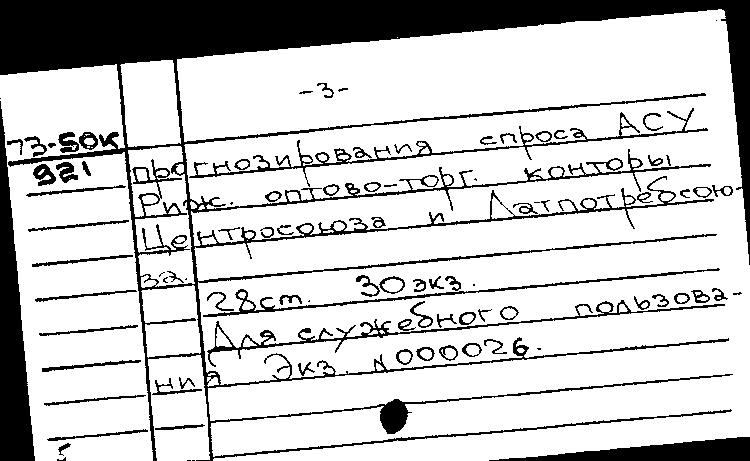 -3-
73-50к
921
прогнозирования спроса АСУ
Риж. оптово-торг. конторы
Центросоюза и Латпотребсою-
за.
28ст. 30экз.
Для служебного пользова-
ния Экз. N000026.